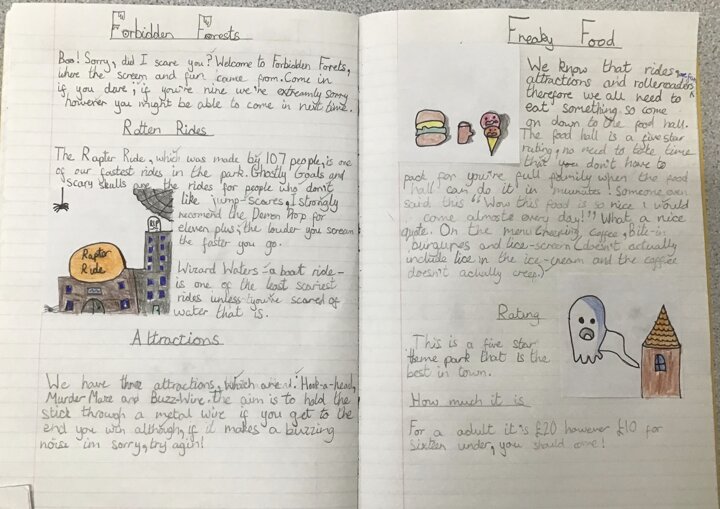 Forbidden Forests
Boo! Sorry, did I scare you? Welcome to Forbidden Forets,
where the scream and fun came from. Come in
if you dare; if you're nine we're extreamly sorry
however you might be able to come in next time.
Rotten Rides
The Raptor Ride, which was made by 107 people, is one
of our fastest rides in the park. Ghostly Goals and
scary skulls are the rides for people who don't
like jump-scares, I strongly
recomend the Demon Drop for
eleven plus; the louder you scream
the faster you go.
RIP
Raptor
Ride
Wizard Waters -a boat ride-
is one of the least scariest
rides unless you're scared of
water that is.
Attractions
We have three attractions, which are: Hook-a-head,
Murder Maze and Buzz-Wire. the aim is to hold the
stick through a metal wire if you get to the
end you win although, if it makes a buzzing
noise im sorry, try agin!
Freaky Food
We know that rides,
attractions and rollercoaders
therefore we all need to
eat something so come
on down to the food hall.
The food hall is a five star
rating, no need to take time
that you don't have to
pack for you're full family when the food
hall can do it in munuits! Someone even
said this "Wow this food is so nice I would
come almoste every day!" What a nice
quote. On the menu: creeping coffee, Bite-in
burglupes and lice-scream (doesn't actually
include lice in the ice-cream and the coffiee
doesn't actully creep.)
Rating
This is a five star
theme park that is the
best in town.
How much it is
For a adult it's £20 however £10 for
sixteen under, you should come!